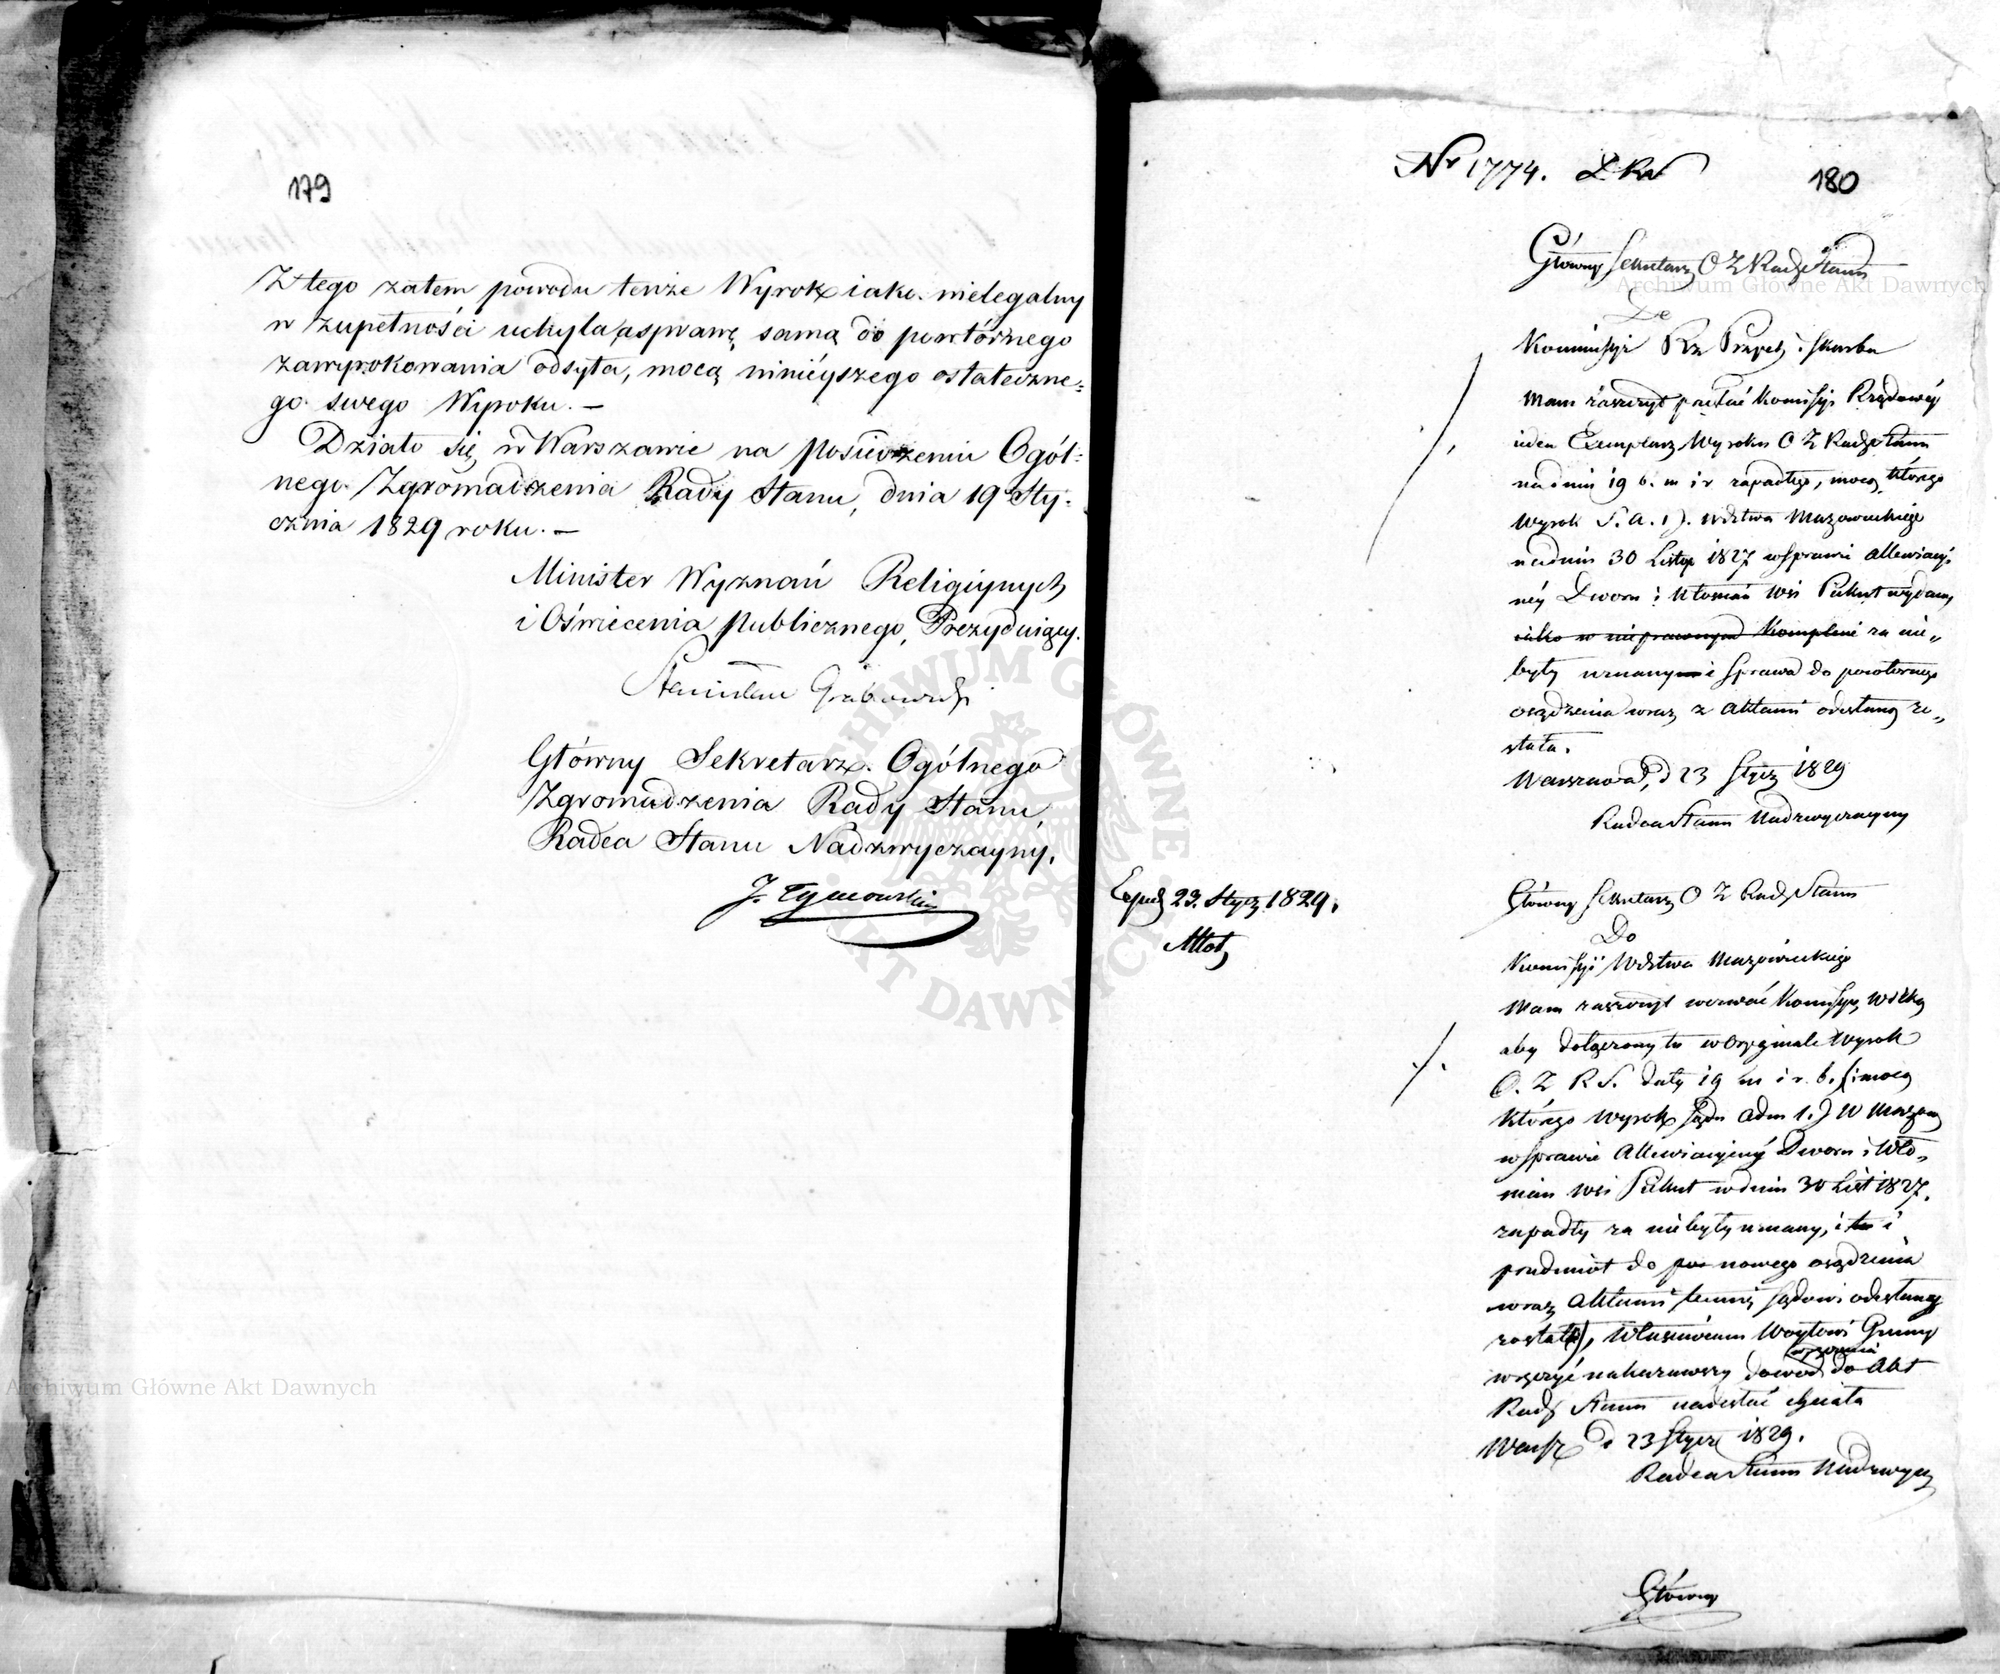 179
Z tego zatem powodu tenże Wyrok iako nielegalny
w zupełności uchyla, a sprawę samą do powtórnego
zawyrokowania odsyła, mocą ninieyszego ostateczne=
go swego Wyroku. –
Działo się w Warszawie na posiedzeniu Ogól=
nego Zgromadzenia Rady Stanu, dnia 19 Sty=
cznia 1829 roku. –
Minister Wyznań Religiynych
i Oświecenia Publicznego, Prezyduiący.
Stanisław Grabowski
Główny Sekretarz Ogólnego
Zgromadzenia Rady Stanu,
Radca Stanu Nadzwyczayny.
J. Tymowski
Nr 1774.
180
Główny Sekretarz O Z Rady Stanu
Do
Kommissyi Rz Przych i Skarbu
Mam zaszczyt przesłać Komissyi Rządowéy
ieden Exemplarz Wyroku O Z Rady Stanu
na dniu 19 b. m i r zapadłego, mocą którego
Wyrok S. A. I). Wdztwa Mazowieckiego
na dniu 30 Listop 1827 w sprawie allewiacyi
néy Dworu i Włościan Wsi Pukut wydany
iako w nieprawnym Komplecie za nie„
były uznany i sprawa do powtórnego
osądzenia wraz z Aktami odesłaną zo„
stała.
Warszawa, d 23 Stycz 1829
Radca Stanu Nadzwyczayny
Exped 23. Stycz. 1829.
Główny Sekretarz O Z Rady Stanu
Do
Komissyi Wdztwa Mazowieckiego
Mam zaszczyt wezwać Komissyę Wdzką
aby dołączony tu w oryginale Wyrok
O. Z R S. daty 19 m i r. b. (: mocą
którego Wyrok Sądu Adm I.) W Mazow
w sprawie Allewiacyiney Dworu i Wło„
ścian Wsi Pukut w dniu 30 List 1827.
zapadły za niebyły uznany, i to i
przedmiot do po nowego osądzenia
wraz Aktami temuż Sądowi odesłany
został), Właściwemu Woytowi Gminy
wręczyć nakazawszy dowód do Akt
wręczenia
Rady Stanu nadesłać chciała
Warsz d 23 Stycz 1829.
Radca Stanu Nadzwycz
Główny
Archiwum Główne Akt Dawnych
Archiwum Główne Akt Dawnych
ARCHIWUM GŁÓWNE AKT DAWNYCH